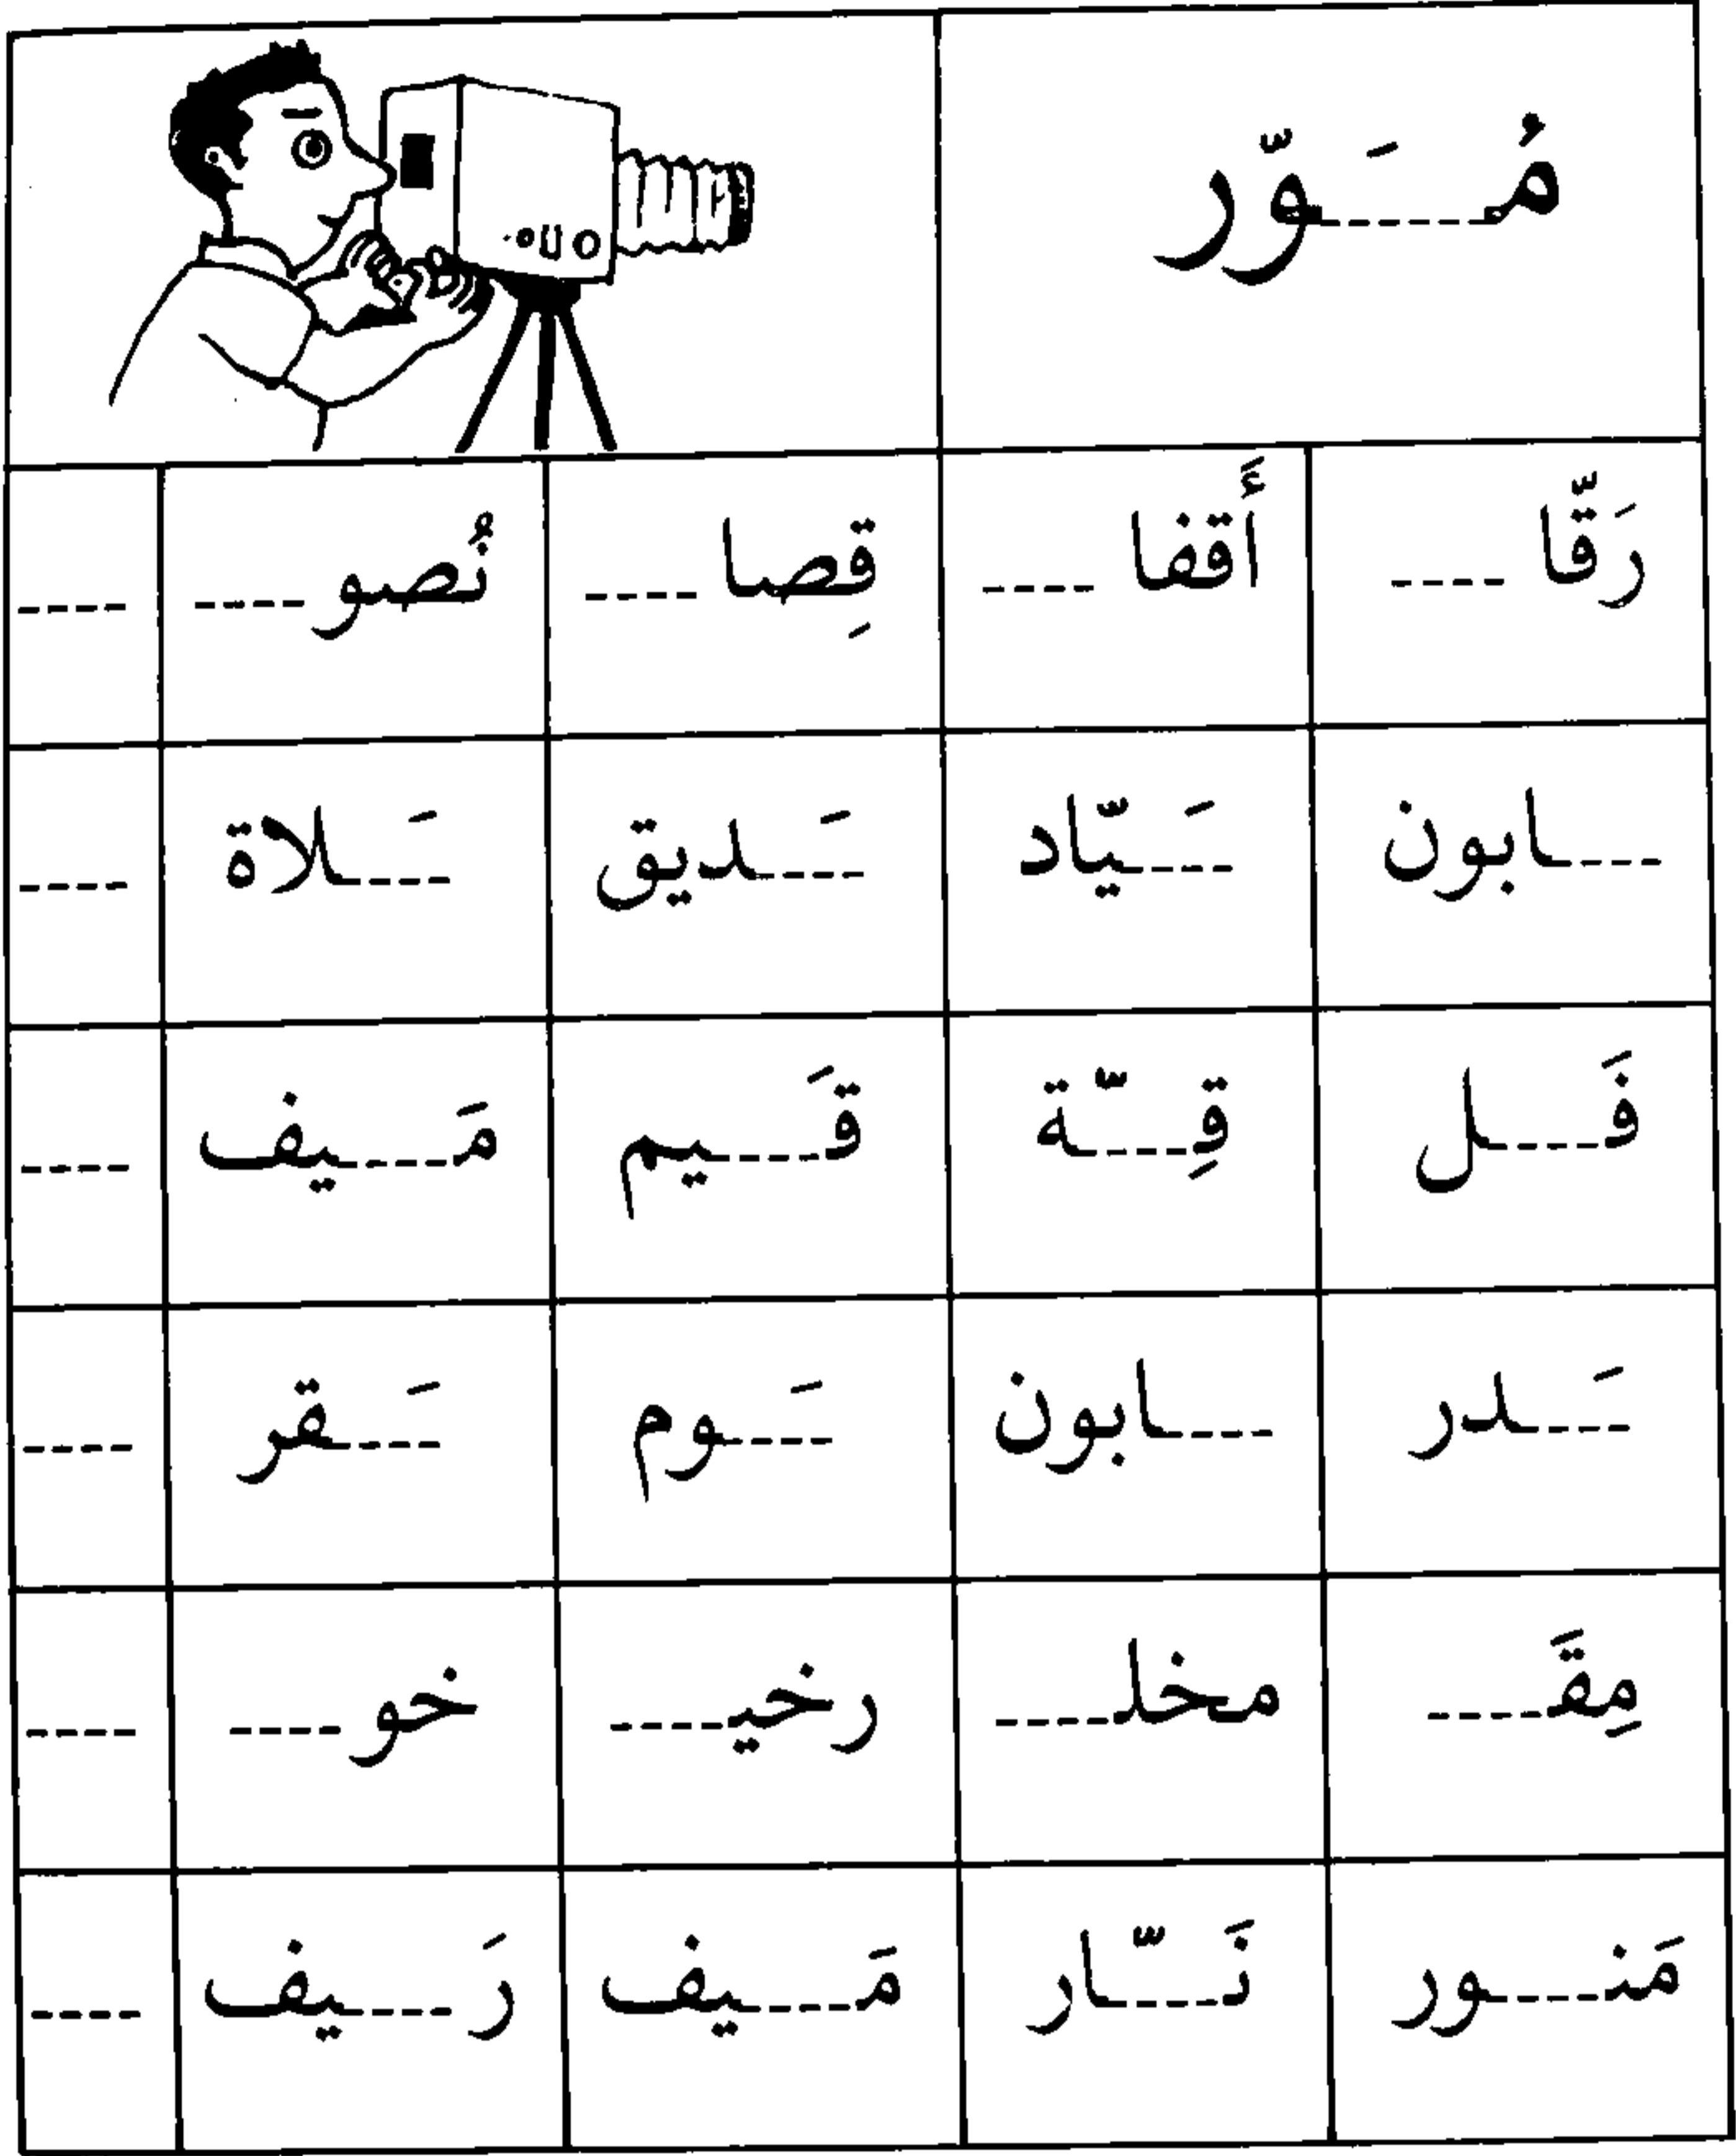 مُـ----َـوّر
رَقَّا---- أَقفا---- قِصا---- نُصو---- ----
----ـابون ----َـيّاد ----َـديق ----َـلاة ----
فَـ----ـل قِـ----ـّة قَـ----ـيم مَـ----ـيف ----
----َـدر ----ـابون ----َـوم ----َـقر ----
مِقَـ---- مخلـ---- رخيـ---- خو---- ----
مَنـ----ـور نَـ----ـّار مَـ----ـيف رَ----ـيف ----